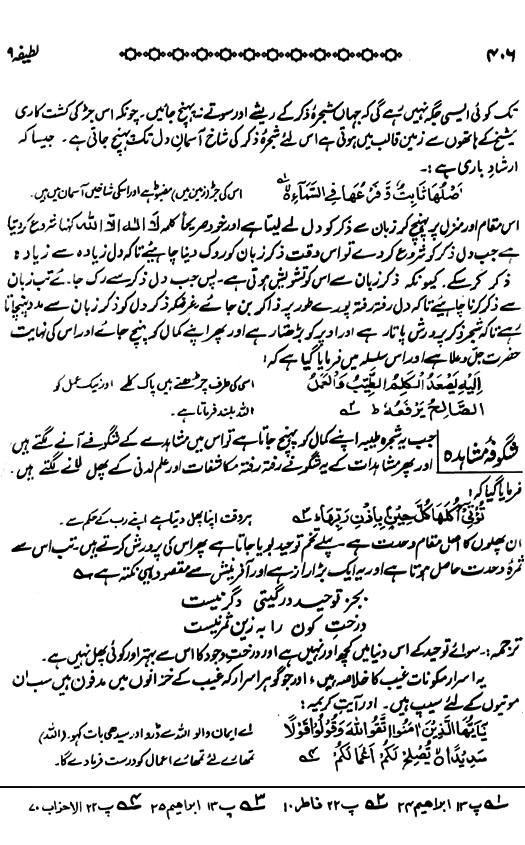 ۴۰۶ لطیفہ ۹
تک کوئی ایسی جگہ نہیں رہے گی کہ جہاں شجرۂ ذکر کے ریشے اور سوتے نہ پہنچ جائیں۔ چونکہ اس جڑ کی کشت کاری
شیخ کے ہاتھوں سے زمین قالب میں ہوتی ہے اس لئے شجرۂ ذکر کی شاخ آسمانِ دل تک پہنچ جاتی ہے۔ جیسا کہ
ارشادِ باری ہے:۔
اَصْلُهَا ثَابِتٌ وَّفَرْعُهَا فِی السَّمَآءِ ۱ اس کی جڑ زمین میں مضبوط ہے اور اسکی شاخیں آسمان میں ہیں.
اس مقام اور منزل پر پہنچ کر زبان سے ذکر کو دل لے لیتا ہے اور خود صریحاً کلمہ لَا اِلٰهَ اِلَّا اللہ کہنا شروع کر دیتا
ہے جب دل ذکر کو شروع کر دے تو اس وقت ذکر زبان کو روک دینا چاہیئے تاکہ دل زیادہ سے زیادہ
ذکر کر سکے. کیونکہ ذکر زبان سے اس کو تشویش ہوتی ہے۔ پس جب دل ذکر سے رک جائے تب زبان
سے ذکر کرنا چاہیئے تاکہ دل رفتہ رفتہ پورے طور پر ذاکر بن جائے غرضکہ ذکر دل کو ذکر زبان سے مدد پہنچاتا
رہے تاکہ شجر ذکر پرورش پاتا رہے اور اوپر کو بڑھتا رہے اور پھر اپنے کمال کو پہنچ جائے اور اس کی نہایت
حضرت جل وعلا ہے اور اس سلسلہ میں فرمایا گیا ہے کہ:
اِلَیْهِ یَصْعَدُ الْکَلِمُ الطَّیِّبُ وَالْعَمَلُ اسی کی طرف چڑھتے ہیں پاک کلمے اور نیک عمل کو
الصَّالِحُ یَرْفَعُهٗ ط ۲ اللہ بلند فرماتا ہے.
شگوفۂ مشاہدہ جب یہ شجرہ طیبہ اپنے کمال کو پہنچ جاتا ہے تو اس میں مشاہدے کے شگوفے آنے لگتے ہیں
اور پھر مشاہدات کے یہ شگوفے رفتہ رفتہ مکاشفات اور علم لدنی کے پھل لانے لگتے ہیں.
فرمایا گیا کہ:
تُؤْتِیْ اُکُلَهَا کُلَّ حِیْنٍ بِاِذْنِ رَبِّهَا ۳ ہر وقت اپنا پھل دیتا ہے اپنے رب کے حکم سے.
ان پھلوں کا اصل مقام وحدت ہے پہلے تخم توحید بویا جاتا ہے پھر اس کی پرورش کرتے ہیں۔ تب اس سے
ثمرۂ وحدت حاصل ہوتا ہے اور یہ ایک بڑا راز ہے اور آفرینش سے مقصود یہی نکتہ ہے
بجز توحید در گیتی دگر نیست
درختِ کون را بہ زین ثمر نیست
ترجمہ:۔ سوائے توحید کے اس دنیا میں کچھ اور نہیں ہے اور درخت وجود کا اس سے بہتر اور کوئی پھل نہیں ہے۔
یہ اسرار مکونات غیب کا خلاصہ ہیں، اور جو گوہر اسرار کہ غیب کے خزانوں میں مدفون ہیں سب ان
موتیوں کے لئے سیپ ہیں۔ اور آیت کریمہ:
یٰٓاَیُّهَا الَّذِیْنَ اٰمَنُوا اتَّقُوا اللہَ وَقُوْلُوْا قَوْلًا اے ایمان والو اللہ سے ڈرو اور سیدھی بات کہو. (اللہ)
سَدِیْدًا ۙ یُّصْلِحْ لَکُمْ اَعْمَالَکُمْ ۴ تمہارے لئے تمہارے اعمال کو درست فرمادے گا۔
۱ پ ۱۳ ابراہیم ۲۴ ۲ پ ۲۲ فاطر ۱۰ ۳ پ ۱۳ ابراہیم ۲۵ ۴ پ ۲۲ الاحزاب ۷۰